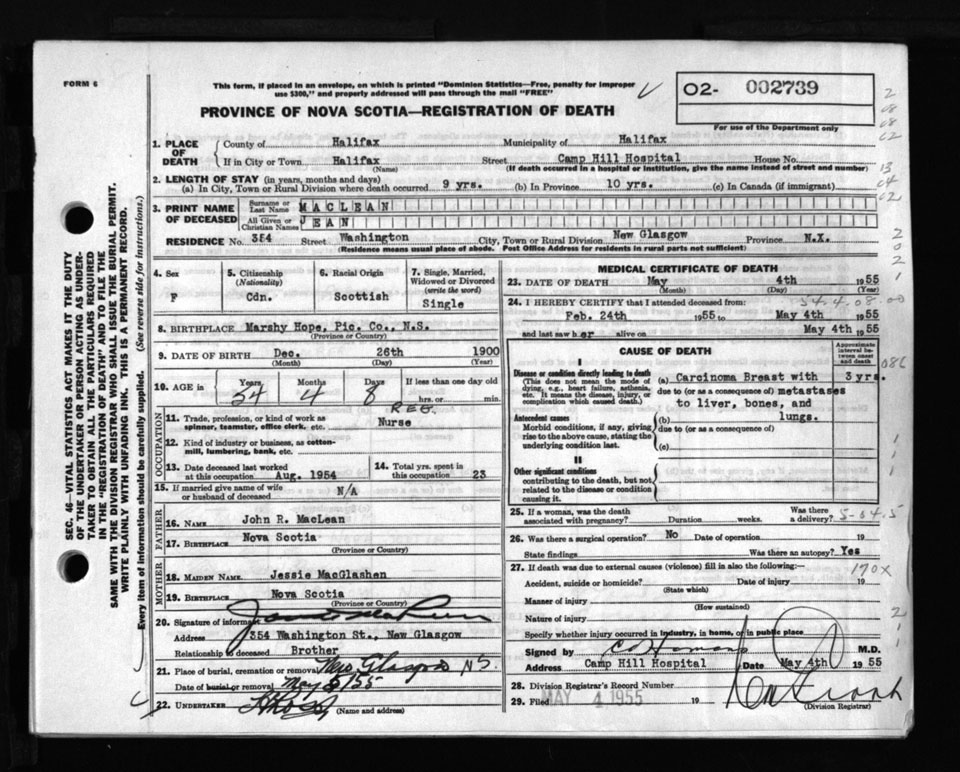 FORM 6
This form, if placed in an envelope, on which is printed "Dominion Statistics—Free, penalty for improper
use $300," and property addressed will pass through the mail "FREE"
PROVINCE OF NOVA SCOTIA—REGISTRATION OF DEATH
O2- 002739
For use of the Department only
1. PLACE OF DEATH
County of Halifax Municipality of Halifax
If in City or Town Halifax Street Camp Hill Hospital House No.
(Name) (If death occurred in a hospital or institution, give the name instead of street and number)
2. LENGTH OF STAY (in years, months and days)
(a) In City, Town or Rural Division where death occurred 9 yrs. (b) In Province 10 yrs. (c) In Canada (if immigrant)
3. PRINT NAME OF DECEASED
Surname or Last Name MACLEAN
All Given or Christian Names JEAN
RESIDENCE No. 354 Street Washington City, Town or Rural Division New Glasgow Province N.X.
(Residence means usual place of abode. Post Office Address for residents in rural parts not sufficient)
4. Sex F
5. Citizenship (Nationality) Cdn.
6. Racial Origin Scottish
7. Single, Married, Widowed or Divorced (write the word) Single
8. BIRTHPLACE Marshy Hope, Pic. Co., N.S.
(Province or Country)
9. DATE OF BIRTH Dec. 26th 1900
(Month) (Day) (Year)
10. AGE in Years 54 Months 4 Days 8 If less than one day old hrs. or min.
OCCUPATION
REG.
11. Trade, profession, or kind of work as spinner, teamster, office clerk, etc. Nurse
12. Kind of industry or business, as cotton-mill, lumbering, bank, etc.
13. Date deceased last worked at this occupation Aug. 1954
14. Total yrs. spent in this occupation 23
15. If married give name of wife or husband of deceased N/A
FATHER
16. NAME John R. MacLean
17. BIRTHPLACE Nova Scotia
(Province or Country)
MOTHER
18. MAIDEN NAME Jessie MacGlashen
19. BIRTHPLACE Nova Scotia
(Province or Country)
20. Signature of informant
Address 354 Washington St., New Glasgow
Relationship to deceased Brother
21. Place of burial, cremation or removal New Glasgow N.S.
Date of burial or removal May 5/55
22. UNDERTAKER
(Name and address)
MEDICAL CERTIFICATE OF DEATH
23. DATE OF DEATH May 4th 1955
(Month) (Day) (Year)
24. I HEREBY CERTIFY that I attended deceased from:
54.4.08.00
Feb. 24th 1955 to May 4th 1955
and last saw her alive on May 4th 1955
CAUSE OF DEATH
Approximate interval between onset and death
I
Disease or condition directly leading to death
(This does not mean the mode of dying, e.g., heart failure, asthenia, etc. It means the disease, injury, or complication which caused death.)
(a) Carcinoma Breast with 3 yrs.
due to (or as a consequence of) metastases
to liver, bones, and
(b) lungs.
Antecedent causes
Morbid conditions, if any, giving rise to the above cause, stating the underlying condition last.
due to (or as a consequence of)
(c)
II
Other significant conditions
contributing to the death, but not related to the disease or condition causing it.
25. If a woman, was the death associated with pregnancy? Duration weeks. Was there a delivery? 5-04.5
26. Was there a surgical operation? No Date of operation 19
State findings Was there an autopsy? Yes
27. If death was due to external causes (violence) fill in also the following:— 170X
Accident, suicide or homicide? Date of injury 19
(State which)
Manner of injury
(How sustained)
Nature of injury
Specify whether injury occurred in industry, in home, or in public place
Signed by M.D.
Address Camp Hill Hospital Date May 4th 1955
28. Division Registrar's Record Number
29. Filed MAY 4 1955 19
(Division Registrar)
SEC. 46—VITAL STATISTICS ACT MAKES IT THE DUTY
OF THE UNDERTAKER OR PERSON ACTING AS UNDER-
TAKER TO OBTAIN ALL THE PARTICULARS REQUIRED
IN THE "REGISTRATION OF DEATH" AND TO FILE THE
SAME WITH THE DIVISION REGISTRAR WHO SHALL ISSUE THE BURIAL PERMIT.
WRITE PLAINLY WITH UNFADING INK. THIS IS A PERMANENT RECORD.
Every item of information should be carefully supplied. (See reverse side for instructions.)
2
08
08
02
13
04
02
2
0
2
1
086
1
1
1
2
1
1